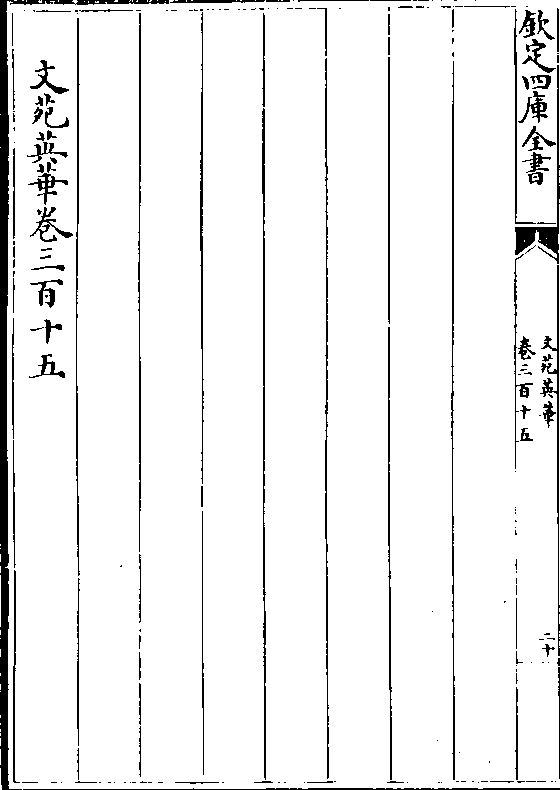 欽定四庫全書
文苑英華
卷三百十五
二十
文苑英華卷三百十五